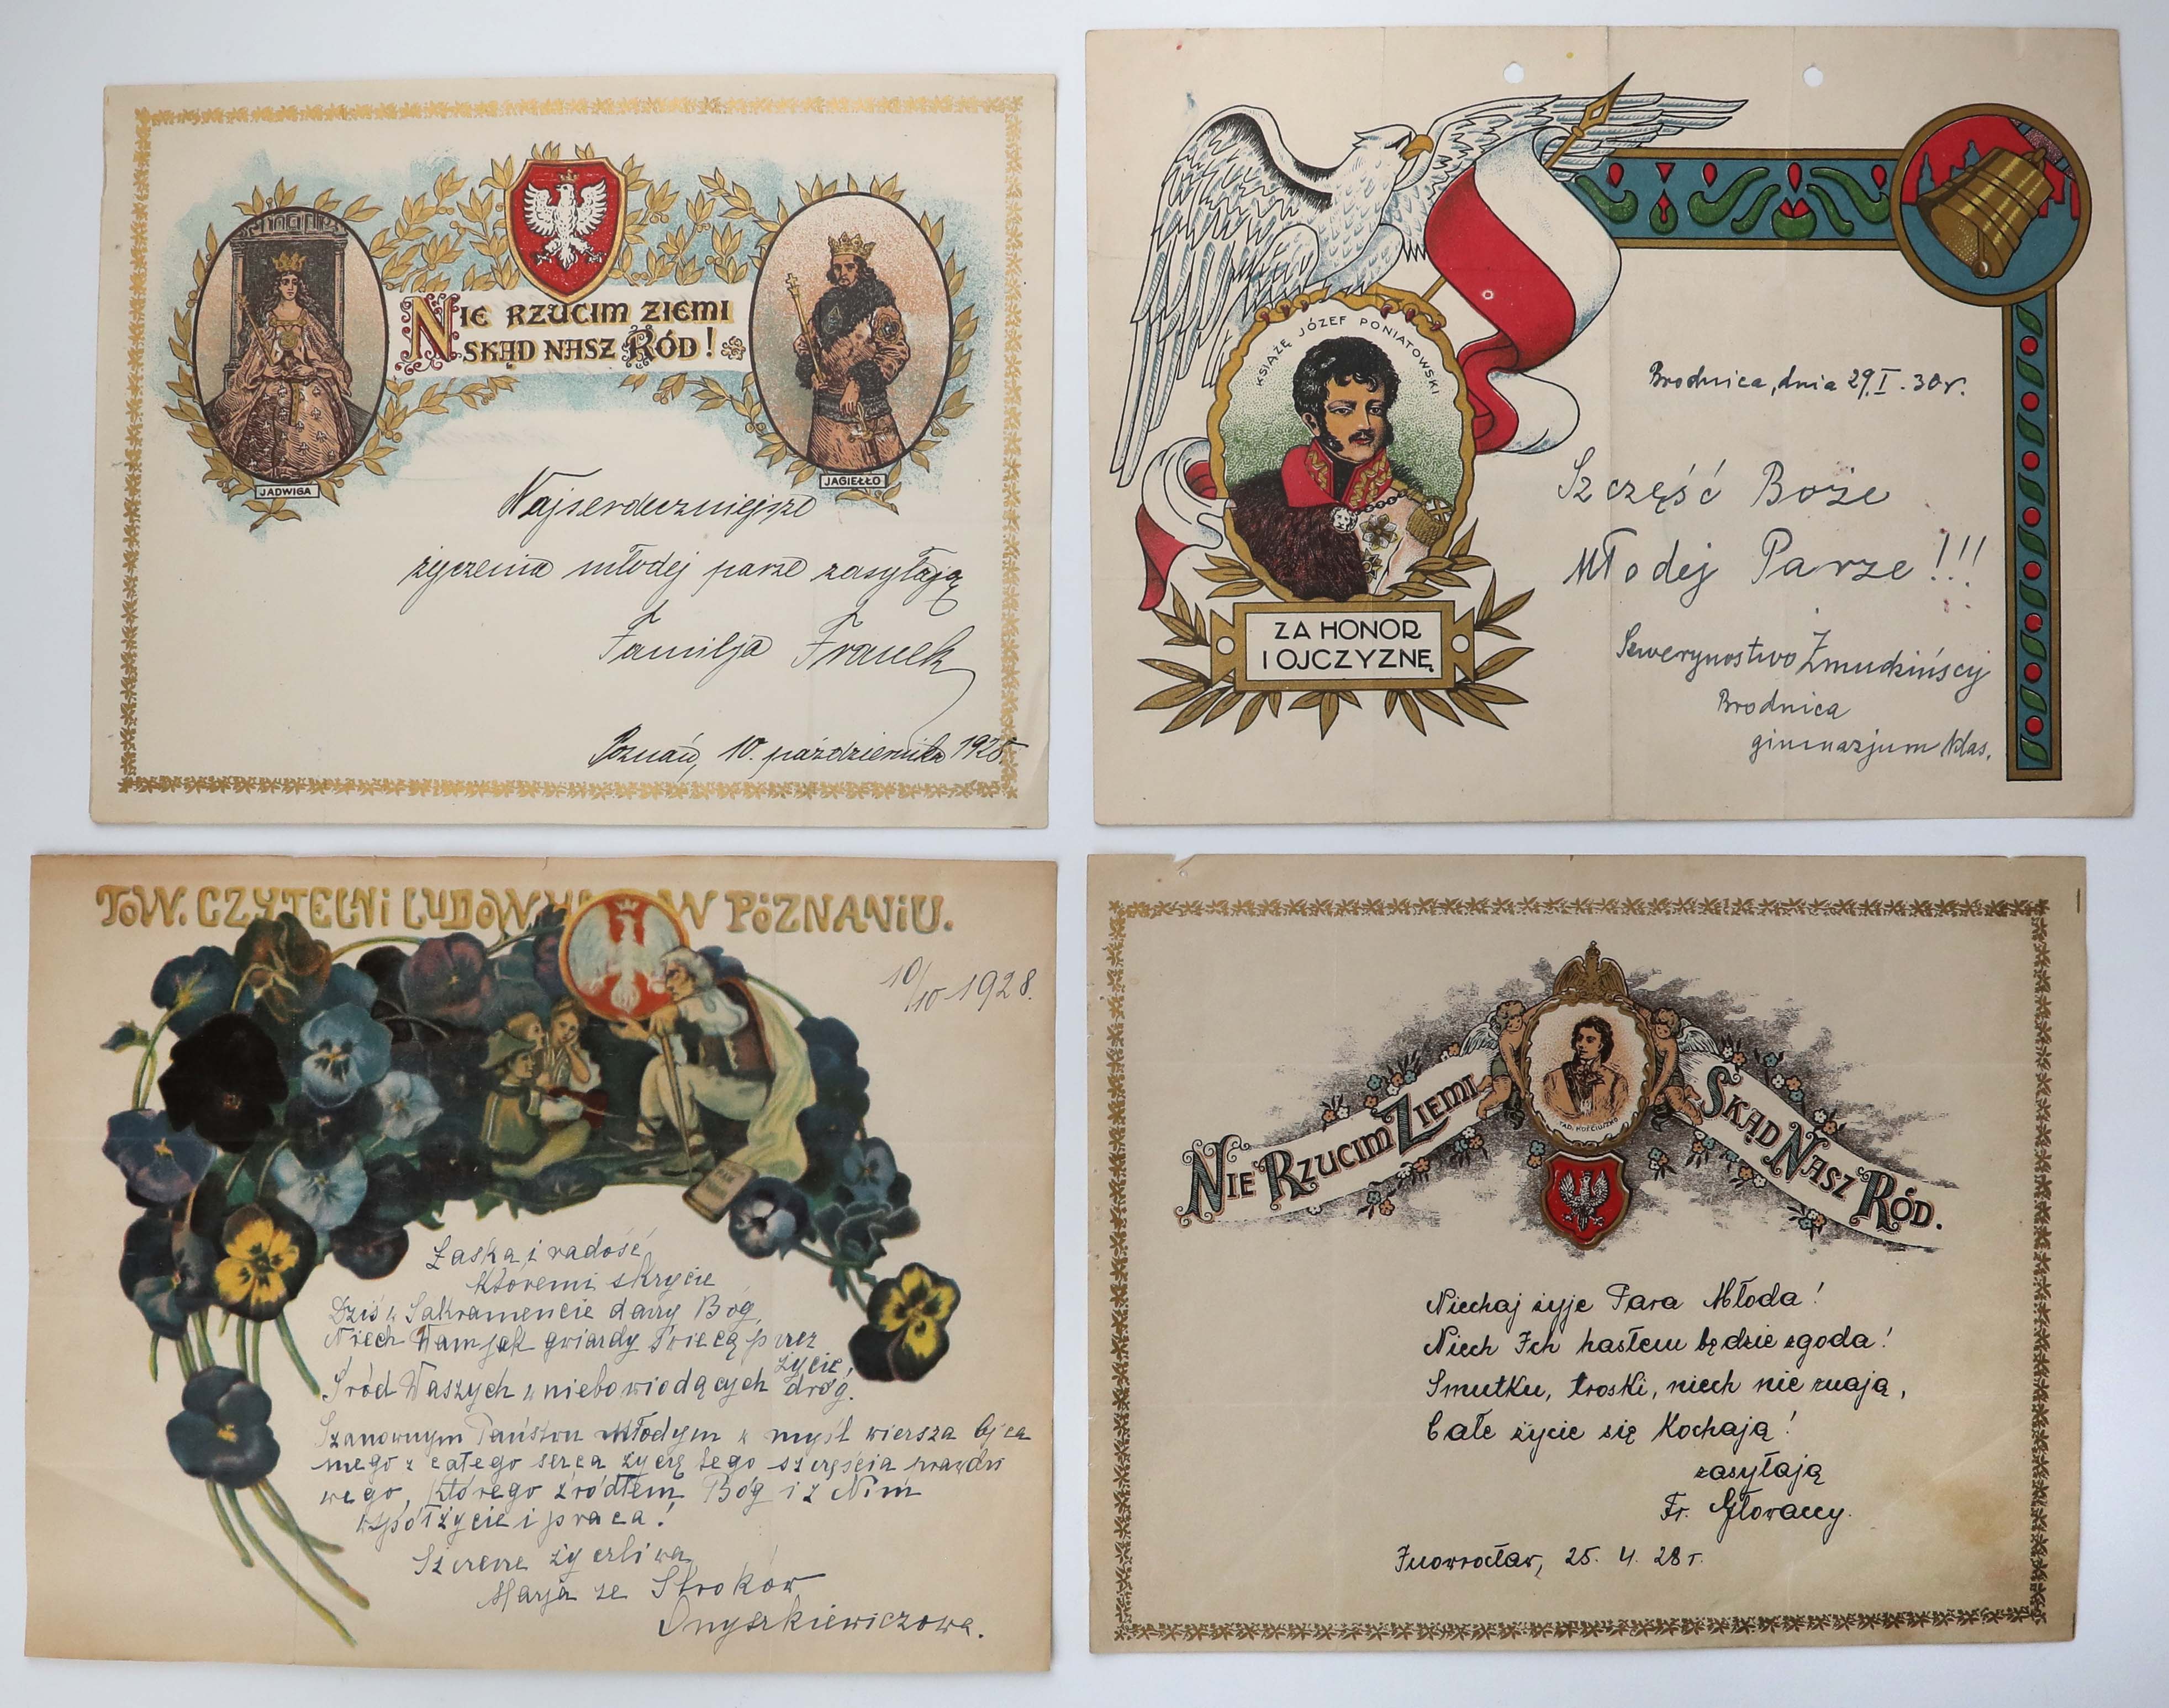 NIE RZUCIM ZIEMI
SKĄD NASZ RÓD!
JADWIGA
JAGIEŁŁO
Najserdeczniejsze
życzenia młodej parze zasyłają
Familja Franek
Poznań, 10. października 1928
KSIĄŻĘ JÓZEF PONIATOWSKI
ZA HONOR
I OJCZYZNĘ
Brodnica, dnia 29.I.30r.
Szczęść Boże
Młodej Parze!!!
Sewerynostwo Żmudzińscy
Brodnica
gimnazjum klas.
TOW. CZYTELNI LUDOWYCH W POZNANIU.
10/10 1928.
Łaska i radość,
któremi skrycie
Dziś w Sakramencie darzy Bóg,
Niech Wam jak gwiazdy świecą przez
życie,
Śród Waszych w niebo wiodących dróg.
Szanownym Państwu Młodym w myśl wiersza ojca
mego z całego serca życzę tego szczęścia prawdzi
wego, którego źródłem Bóg i z Nim
współżycie i praca!
Szczerze życzliwa
Marja ze Stroków
Onyszkiewiczowa.
NIE RZUCIM ZIEMI SKĄD NASZ RÓD.
TAD. KOŚCIUSZKO
Niechaj żyje Para Młoda!
Niech Ich hasłem będzie zgoda!
Smutku, troski, niech nie znają,
Całe życie się kochają!
zasyłają
Fr.
Inowrocław, 25. 4. 28 r.